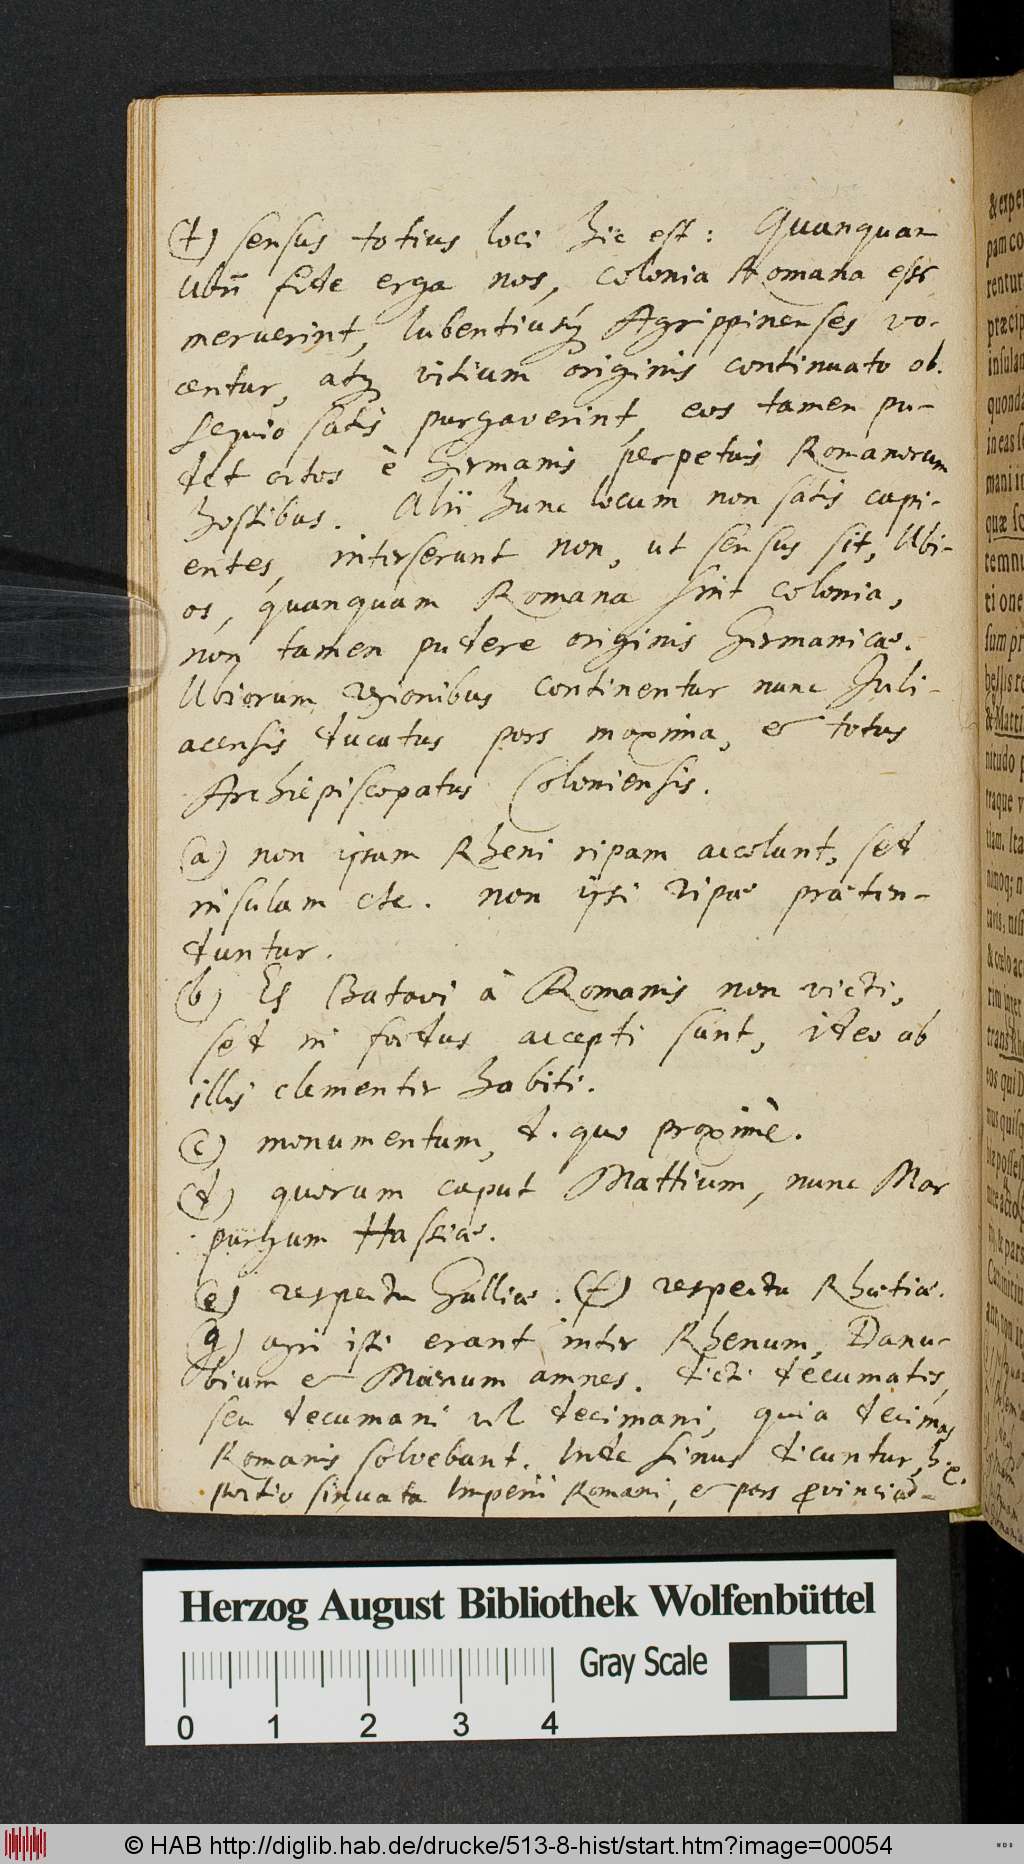 (t) sensus totius loci hic est: Quanquam
Ubii fide erga nos, colonia Romana esse
meruerint, lubentiusq; Agrippinenses vo-
centur, atq; vitium originis continuato ob-
sequio satis purgaverint, eos tamen pu-
det ortos è Germanis perpetuis Romanorum
hostibus. Alii hunc locum non satis capi-
entes, interserunt non, ut sensus sit, Ubi-
os, quanquam Romana sint colonia,
non tamen pudere originis Germanicae.
Ubiorum regionibus continentur nunc Juli-
acensis ducatus pars maxima, et totus
Archiepiscopatus Coloniensis.
(a) non ipsam Rheni ripam accolunt, sed
insulam etc. non ipsi ripae praeten-
duntur.
(b) Es Batavi à Romanis non victi,
sed in foedus accepti sunt, ideo ab
illis clementer habiti.
(c) monumentum, d. quo proximè.
(d) quorum caput Mattium, nunc Mar
purgum Hassiae.
(e) respectu Galliae. (f) respectu Rhaetiae.
(g) agri isti erant inter Rhenum, Danu-
bium et Moenum amnes. dicti decumates,
seu decumani vel decimani, quia decimas
Romanis solvebant. Inde sinus dicuntur, h. e.
portio sinuata Imperii Romani, et pars provinciae
& expe
pam co
rentur
præcip
insulan
quonda
in eas s
mani in
quæ so
temnu
ti one
sum pr
bellis re
& Matti
nitudo
traque v
tiam. Ita
nimoq; n
& cœlo ac
trans Rhe
eos qui D
Herzog August Bibliothek Wolfenbüttel
Gray Scale
0 1 2 3 4
© HAB http://diglib.hab.de/drucke/513-8-hist/start.htm?image=00054